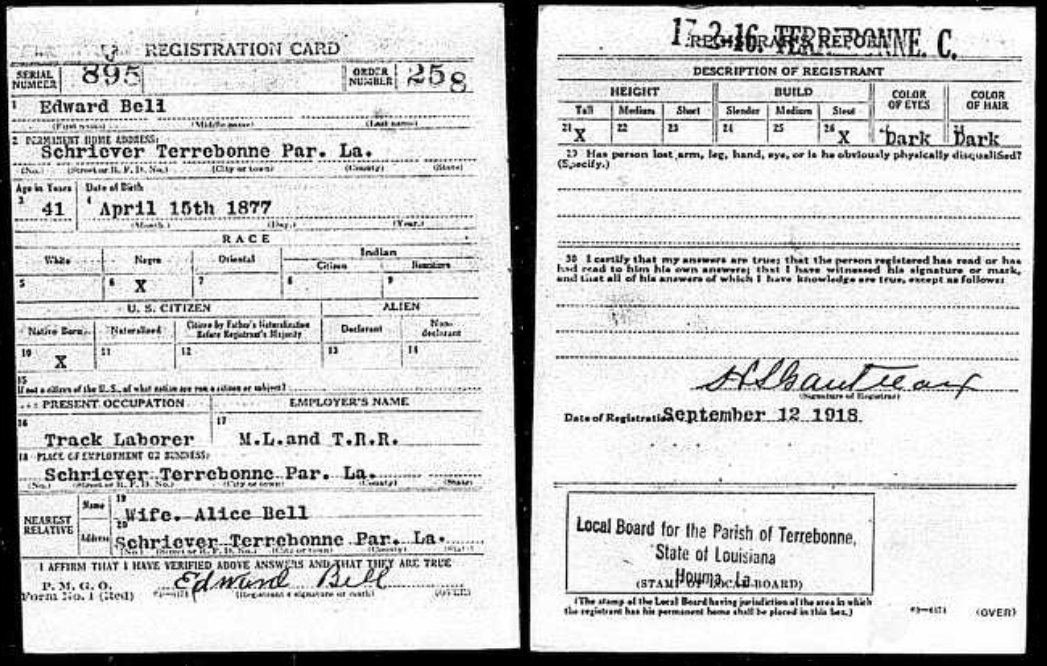 REGISTRATION CARD
SERIAL NUMBER 895
ORDER NUMBER 258
1 Edward Bell
(First name) (Middle name) (Last name)
2 PERMANENT HOME ADDRESS:
Schriever Terrebonne Par. La.
(No.) (Street or R. F. D. No.) (City or town) (County) (State)
Age in Years Date of Birth
3 41 4 April 15th 1877
(Month.) (Day.) (Year.)
RACE
White Negro Oriental Indian
Citizen Noncitizen
5 6 X 7 8 9
U. S. CITIZEN ALIEN
Native Born Naturalized Citizen by Father's Naturalization Before Registrant's Majority Declarant Non-declarant
10 X 11 12 13 14
15
If not a citizen of the U. S., of what nation are you a citizen or subject?
PRESENT OCCUPATION EMPLOYER'S NAME
16 Track Laborer 17 M.L.and T.R.R.
18 PLACE OF EMPLOYMENT OR BUSINESS:
Schriever Terrebonne Par. La.
(No.) (Street or R. F. D. No.) (City or town) (County) (State)
NEAREST RELATIVE
Name 19 Wife. Alice Bell
Address 20 Schriever Terrebonne Par. La.
(No.) (Street or R. F. D. No.) (City or town) (County) (State)
I AFFIRM THAT I HAVE VERIFIED ABOVE ANSWERS AND THAT THEY ARE TRUE
P. M. G. O.
Form No. 1 (Red) Edward Bell
(Registrant's signature or mark) (OVER)
17-2-16. TERREBONNE. C.
REGISTRAR'S REPORT
DESCRIPTION OF REGISTRANT
HEIGHT BUILD COLOR OF EYES COLOR OF HAIR
Tall Medium Short Slender Medium Stout
21 X 22 23 24 25 26 X Dark Dark
29 Has person lost arm, leg, hand, eye, or is he obviously physically disqualified?
(Specify.)
30 I certify that my answers are true; that the person registered has read or has
had read to him his own answers; that I have witnessed his signature or mark,
and that all of his answers of which I have knowledge are true, except as follows:
(Signature of Registrar)
Date of Registration September 12 1918
Local Board for the Parish of Terrebonne,
State of Louisiana
Houma, La.
(STAMP OF LOCAL BOARD)
(The stamp of the Local Board having jurisdiction of the area in which
the registrant has his permanent home shall be placed in this box.)
(OVER)